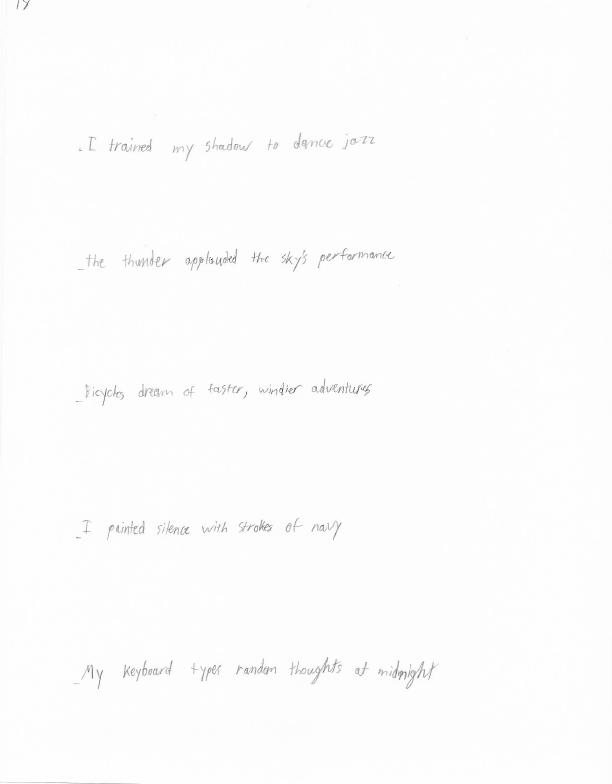 19
. I trained my shadow to dance jazz
_ the thunder applauded the sky's performance
_ Bicycles dream of faster, windier adventures
_ I painted silence with strokes of navy
_ My keyboard types random thoughts at midnight